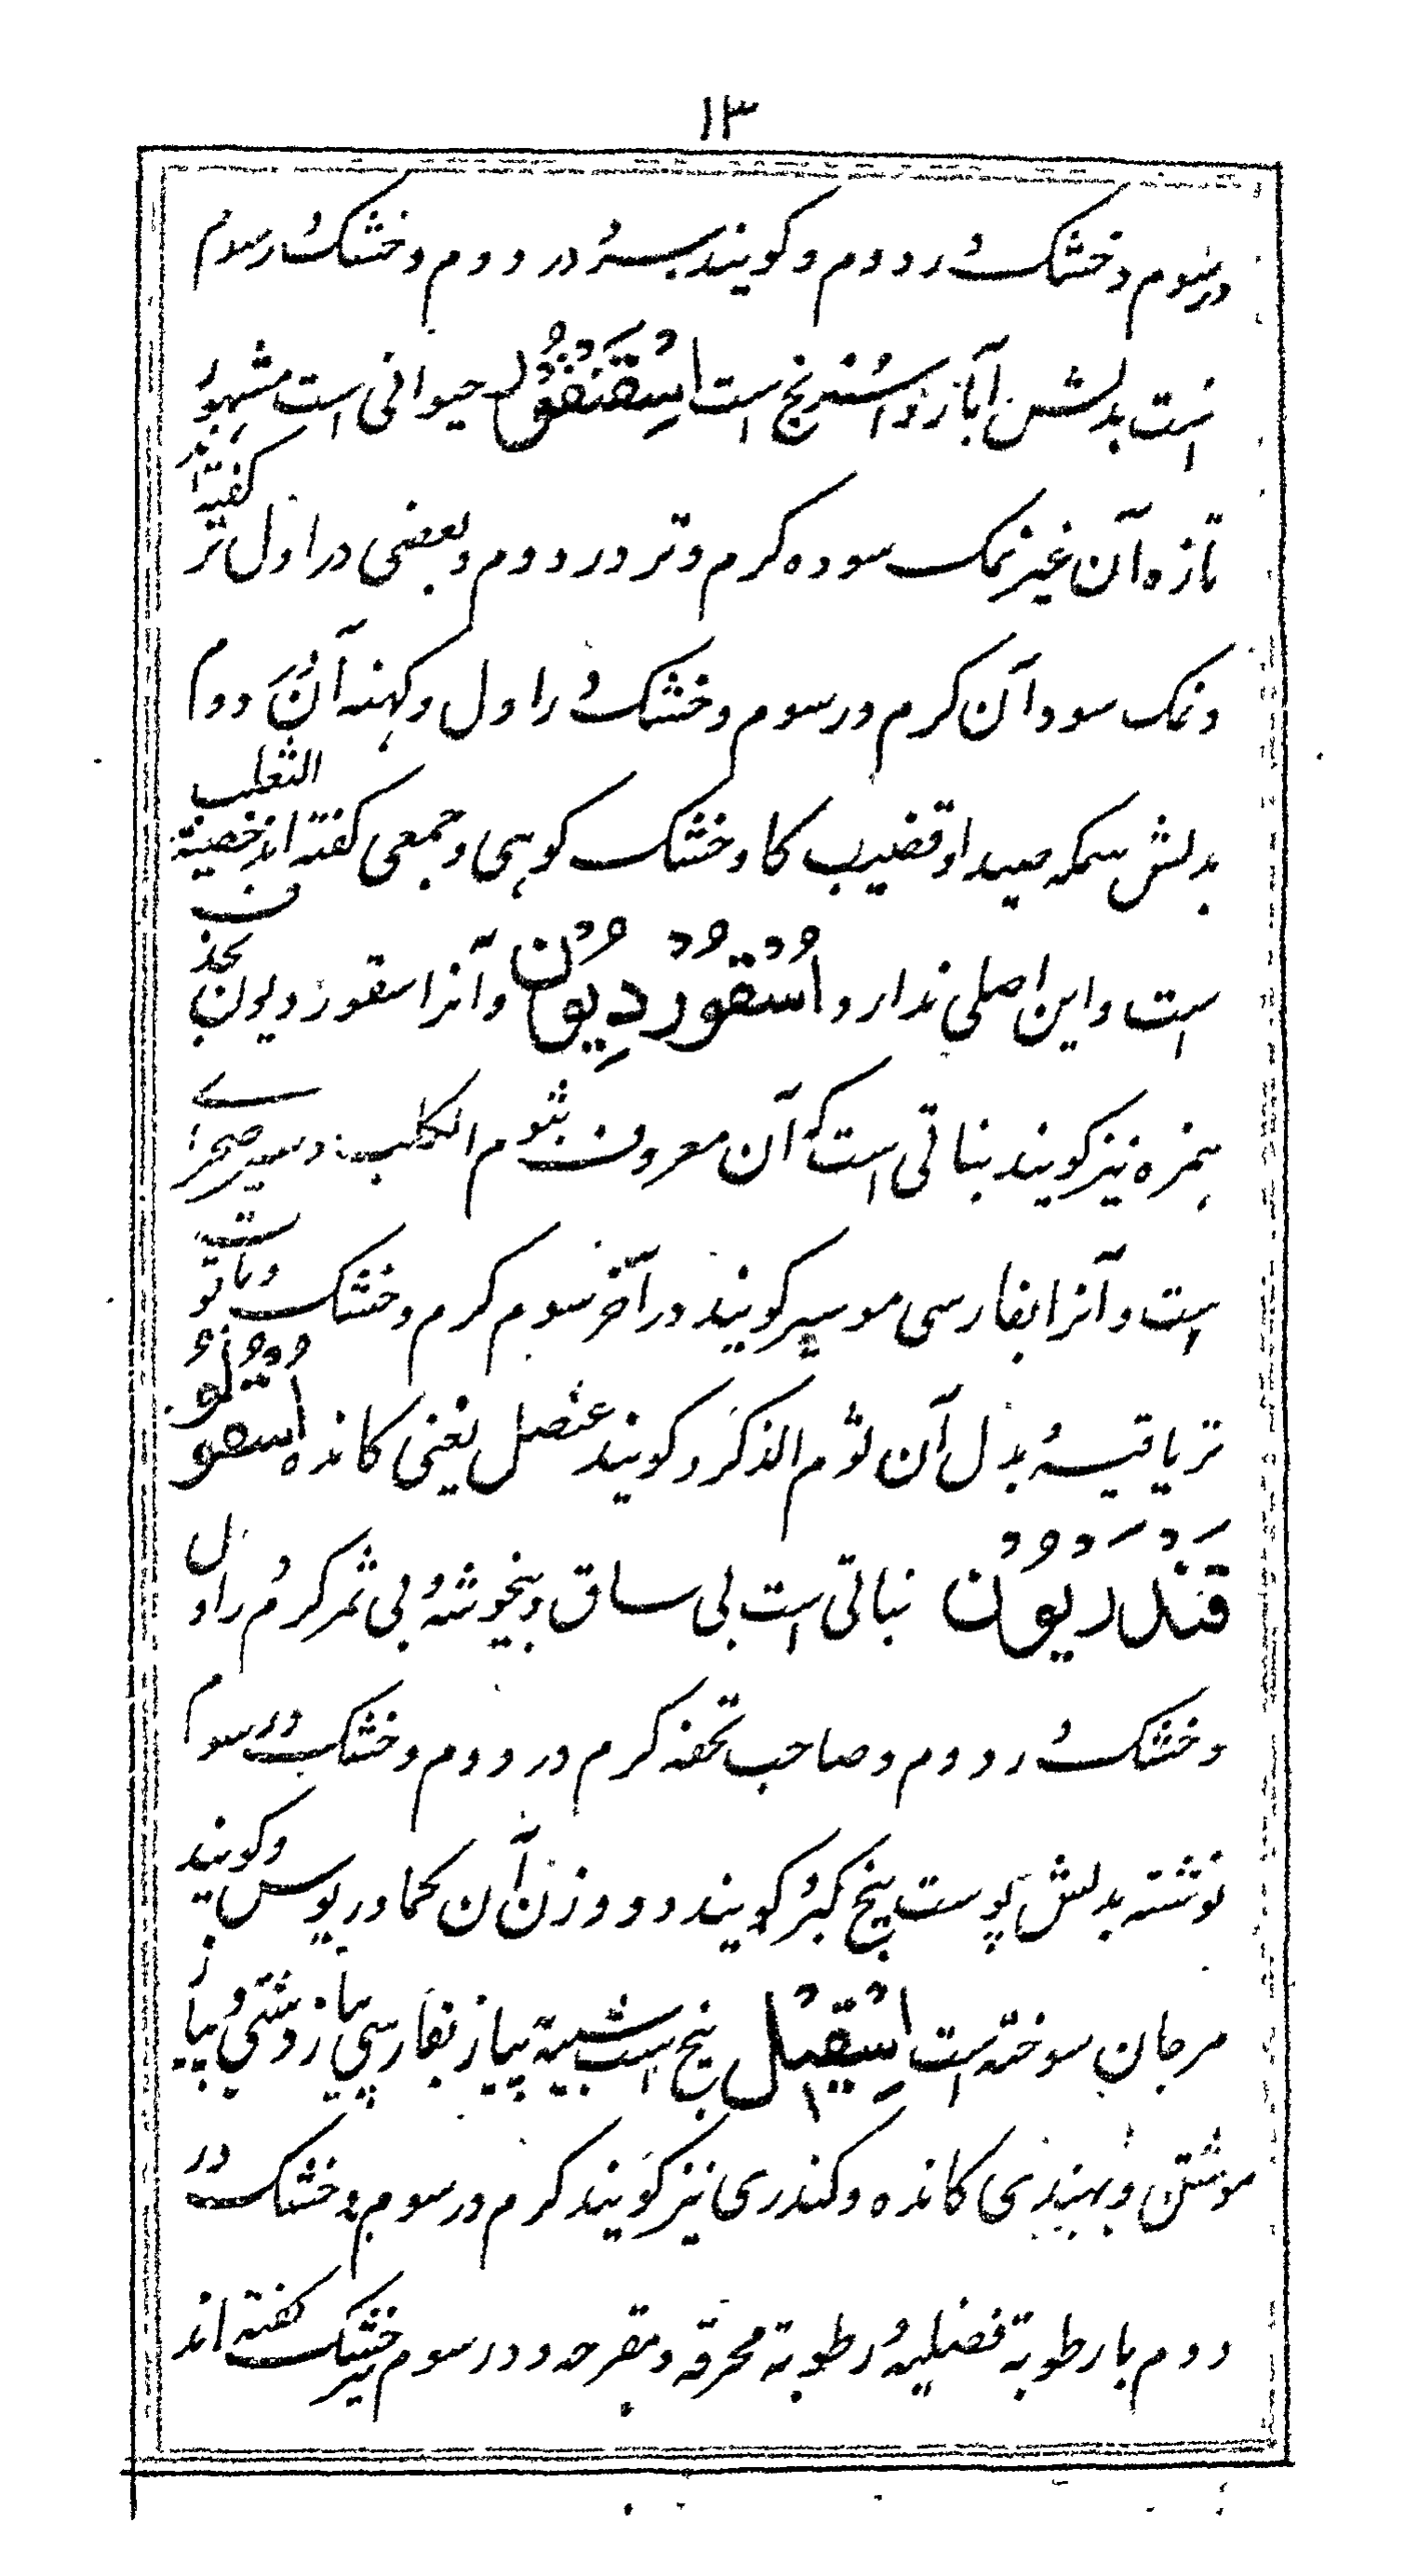 ۱۳
در سوم و خشک در دوم و گویند بسرد در دوم و خشک در سوم
است بدلش آبار و اسرنج است اسقنقور حیوانی است مشهور
تازه آن غیر نمک سوده کرم و تر در دوم و بعضی در اول تر گفته اند
و نمک سود آن کرم در سوم و خشک در اول و کهنه آن در دوم
بدلش سمکه صیدا و قضیب کاو خشک کوهی و جمعی گفته اند خصیة الثعلب
است و این اصلی ندارد اسقوردیون و آنرا سقوردیون بحذف
همزه نیز کویند نباتی است که آن معروف بثوم الکلب و سیر صحرائے
است و آنرا بفارسی موسیر کویند در آخر سوم کرم و خشک و با قوت
تریاقیه بدل آن ثوم الذکر و کویند عنصل یعنی کانده اسقولو
قندریون نباتی است بی ساق و بیخوشه و بی ثمر کرم در اول
و خشک در دوم و صاحب تحفه کرم در دوم و خشک در سوم
نوشته بدلش پوست بیخ کبر کویند دو وزن آن کمادریوس و کویند
مرجان سوخته است اسقیل بیخ است شبیه پیاز بفارسی پیاز دشتی و پیاز
موش و بهندی کانده و کندری نیز کویند کرم در سوم و خشک در
دوم با رطوبة فضلیه و رطوبة محرقه و مقرحه و در سوم نیز خشک گفته اند